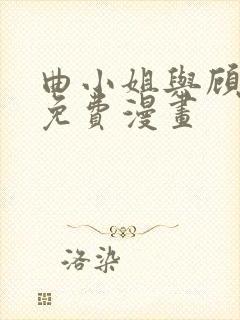 曲小姐與顧
免費漫畫
洛染